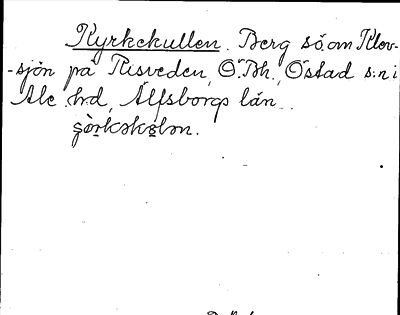 Kyrkekullen. Berg sö om Klov-
-sjön på Risveden, Ö.Bh., Östad s:n i
Ale hd, Älfsborgs län.